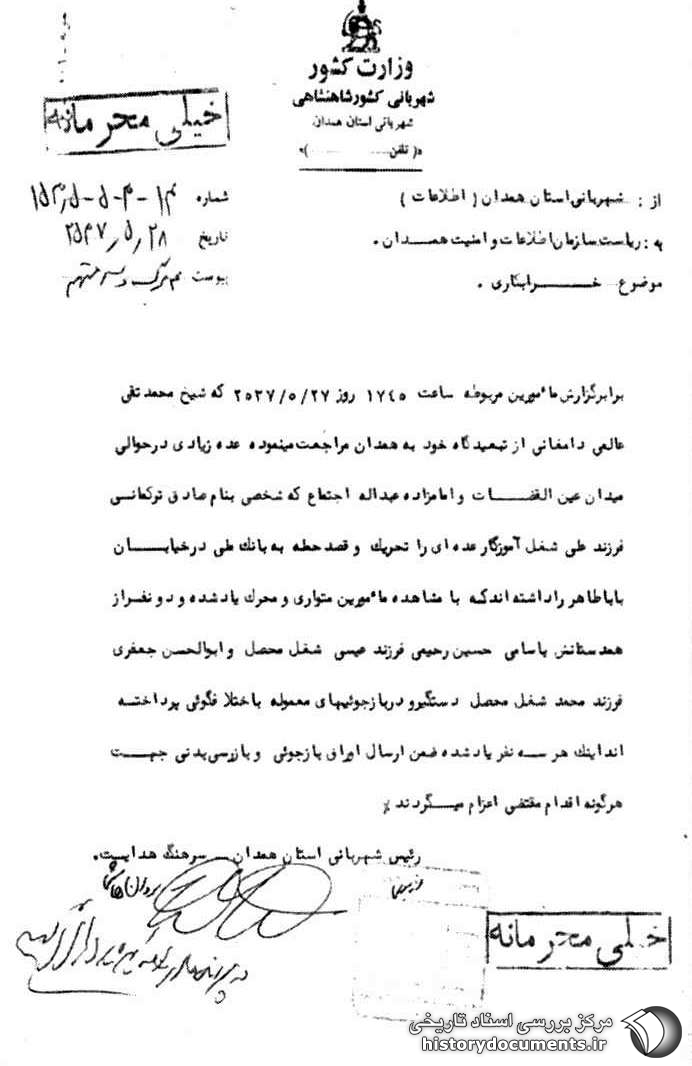 وزارت کشور
شهربانی کشور شاهنشاهی
شهربانی استان همدان
(تلفن ............ )
خیلی محرمانه
از : شهربانی استان همدان ( اطلاعات )
شماره ۱۴-۳-۵-
به : ریاست سازمان اطلاعات و امنیت همدان .
تاریخ ۲۸/۵/۲۵۳۷
موضوع خرابکاری .
پیوست متهم
برابر گزارش مأمورین مربوطه ساعت ۱۷٤۵ روز ۲۵۳۷/۵/۲۷ که شیخ محمد تقی
عالمی دامغانی از تبعیدگاه خود به همدان مراجعت مینموده عده زیادی در حوالی
میدان عین القضات و امامزاده عبداله اجتماع که شخصی بنام صادق ترکمانی
فرزند علی شغل آموزگار عده ای را تحریک و قصد حمله به بانک ملی در خیابان
باباطاهر را داشته اند که با مشاهده مأمورین متواری و محرک یاد شده و دو نفر از
همدستانش باسامی حسین رحیمی فرزند عیسی شغل محصل و ابوالحسن جعفری
فرزند محمد شغل محصل دستگیر و در بازجوئیهای معموله باختلاف گوئی پرداخته
اند اینک هر سه نفر یاد شده ضمن ارسال اوراق بازجوئی و بازرسی بدنی جهت
هرگونه اقدام مقتضی اعزام میگردند
رئیس شهربانی استان همدان سرهنگ هدایت .
خیلی محرمانه
مرکز بررسی اسناد تاریخی
historydocuments.ir